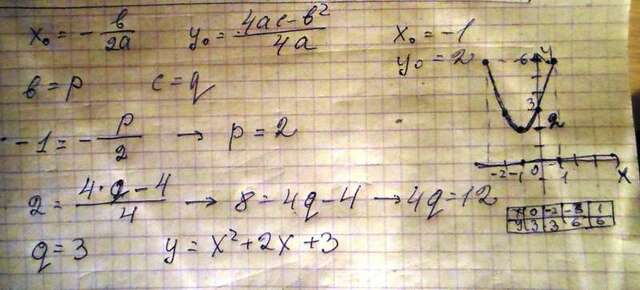 x₀ = -в/2a y₀ = 4ac-в²/4a x₀ = -1
y₀ = 2
в = p c = q
-1 = -p/2 → p = 2
2 = 4·q-4/4 → 8 = 4q-4 → 4q = 12
q = 3 y = x²+2x+3
y
6
3
2
-2 -1 0 1 x
x 0 -2 -3 1
y 3 3 6 6